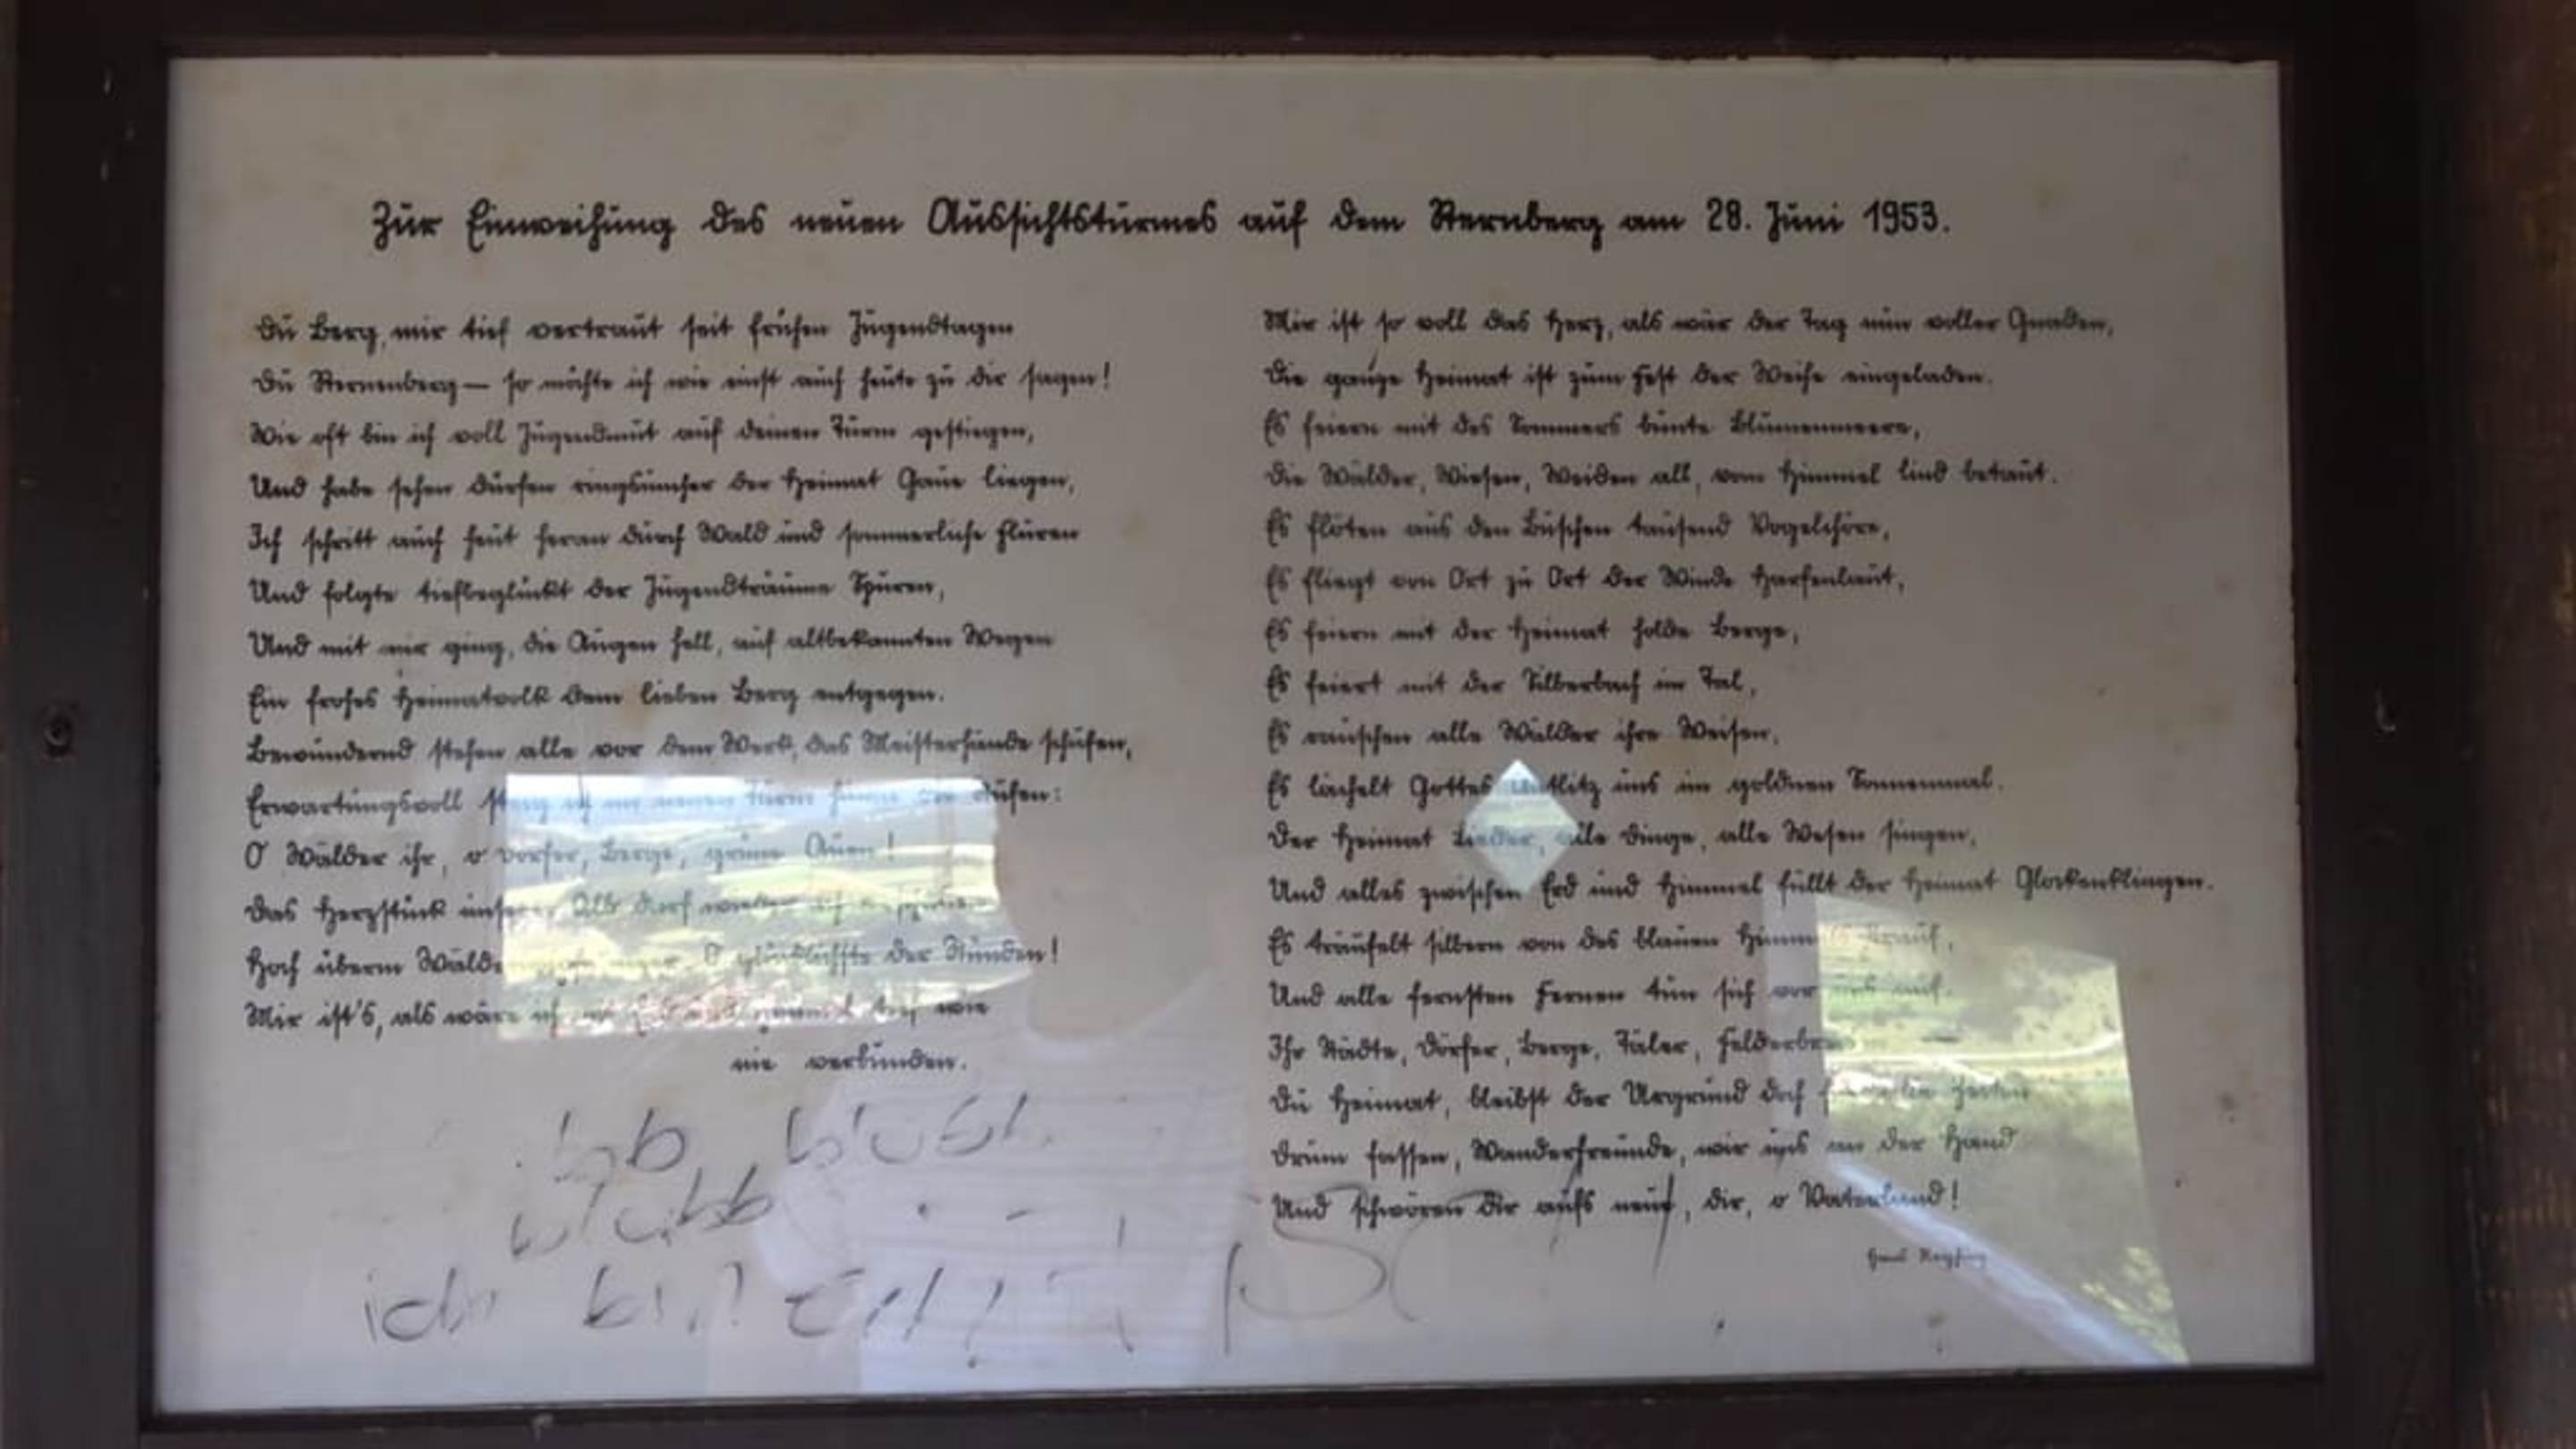 Zur Einweihung des neuen Aussichtsturmes auf dem Sternberg am 28. Juni 1953.
Du Berg, mir tief vertraut seit frühen Jugendtagen
Du Sternenberg — so möchte ich wie einst auch heute zu dir sagen!
Wie oft bin ich voll Jugendmut auf deinen Turm gestiegen,
Und habe sehen dürfen ringsumher der Heimat Gaue liegen,
Ich schritt auch heut heran durch Wald und sommerliche Fluren
Und folgte tiefbeglückt der Jugendträume Spuren,
Und mit mir ging, die Augen hell, auf altbekannten Wegen
Ein frohes Heimatvolk dem lieben Berg entgegen.
Bewundernd stehen alle vor dem Werk, das Meisterhände schufen,
Erwartungsvoll steig ich im neuen Turm hinan die Stufen:
O Wälder ihr, o Dörfer, Berge, grüne Auen!
Das Herzstück unserer Alb darf wieder ich
Hoch überm Wälder O glücklichste der Stunden!
Mir ist's, als wäre ich tief wie
nie verbunden.
Mir ist so voll das Herz, als wär der Tag nun voller Gnaden,
Die ganze Heimat ist zum Fest der Weihe eingeladen.
Es feiern mit des Sommers bunte Blumenmeere,
Die Wälder, Wiesen, Weiden all, vom Himmel lind betaut.
Es flöten aus den Büschen tausend Vogelchöre,
Es fliegt von Ort zu Ort der Winde Harfenlaut,
Es feiern mit der Heimat holde Berge,
Es feiert mit der Silberbach im Tal,
Es rauschen alle Wälder ihre Weisen,
Es lächelt Gottes Antlitz uns im goldnen Sonnenmal.
Der Heimat Lieder, alle Dinge, alle Wesen singen,
Und alles zwischen Erd und Himmel füllt der Heimat Glockenklingen.
Es träufelt silbern von des blauen Himmels
Und alle fernsten Fernen tun sich vor uns auf.
Ihr Städte, Dörfer, Berge, Täler,
Du Heimat, bleibst der Urgrund doch
Drum fassen, Wanderfreunde, wir uns an der Hand
Und schwören dir aufs neue, dir, o Vaterland!
Hans Reyhing
ich bin